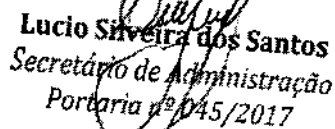 Lucio Silveira dos Santos
Secretário de Administração
Portaria nº 045/2017